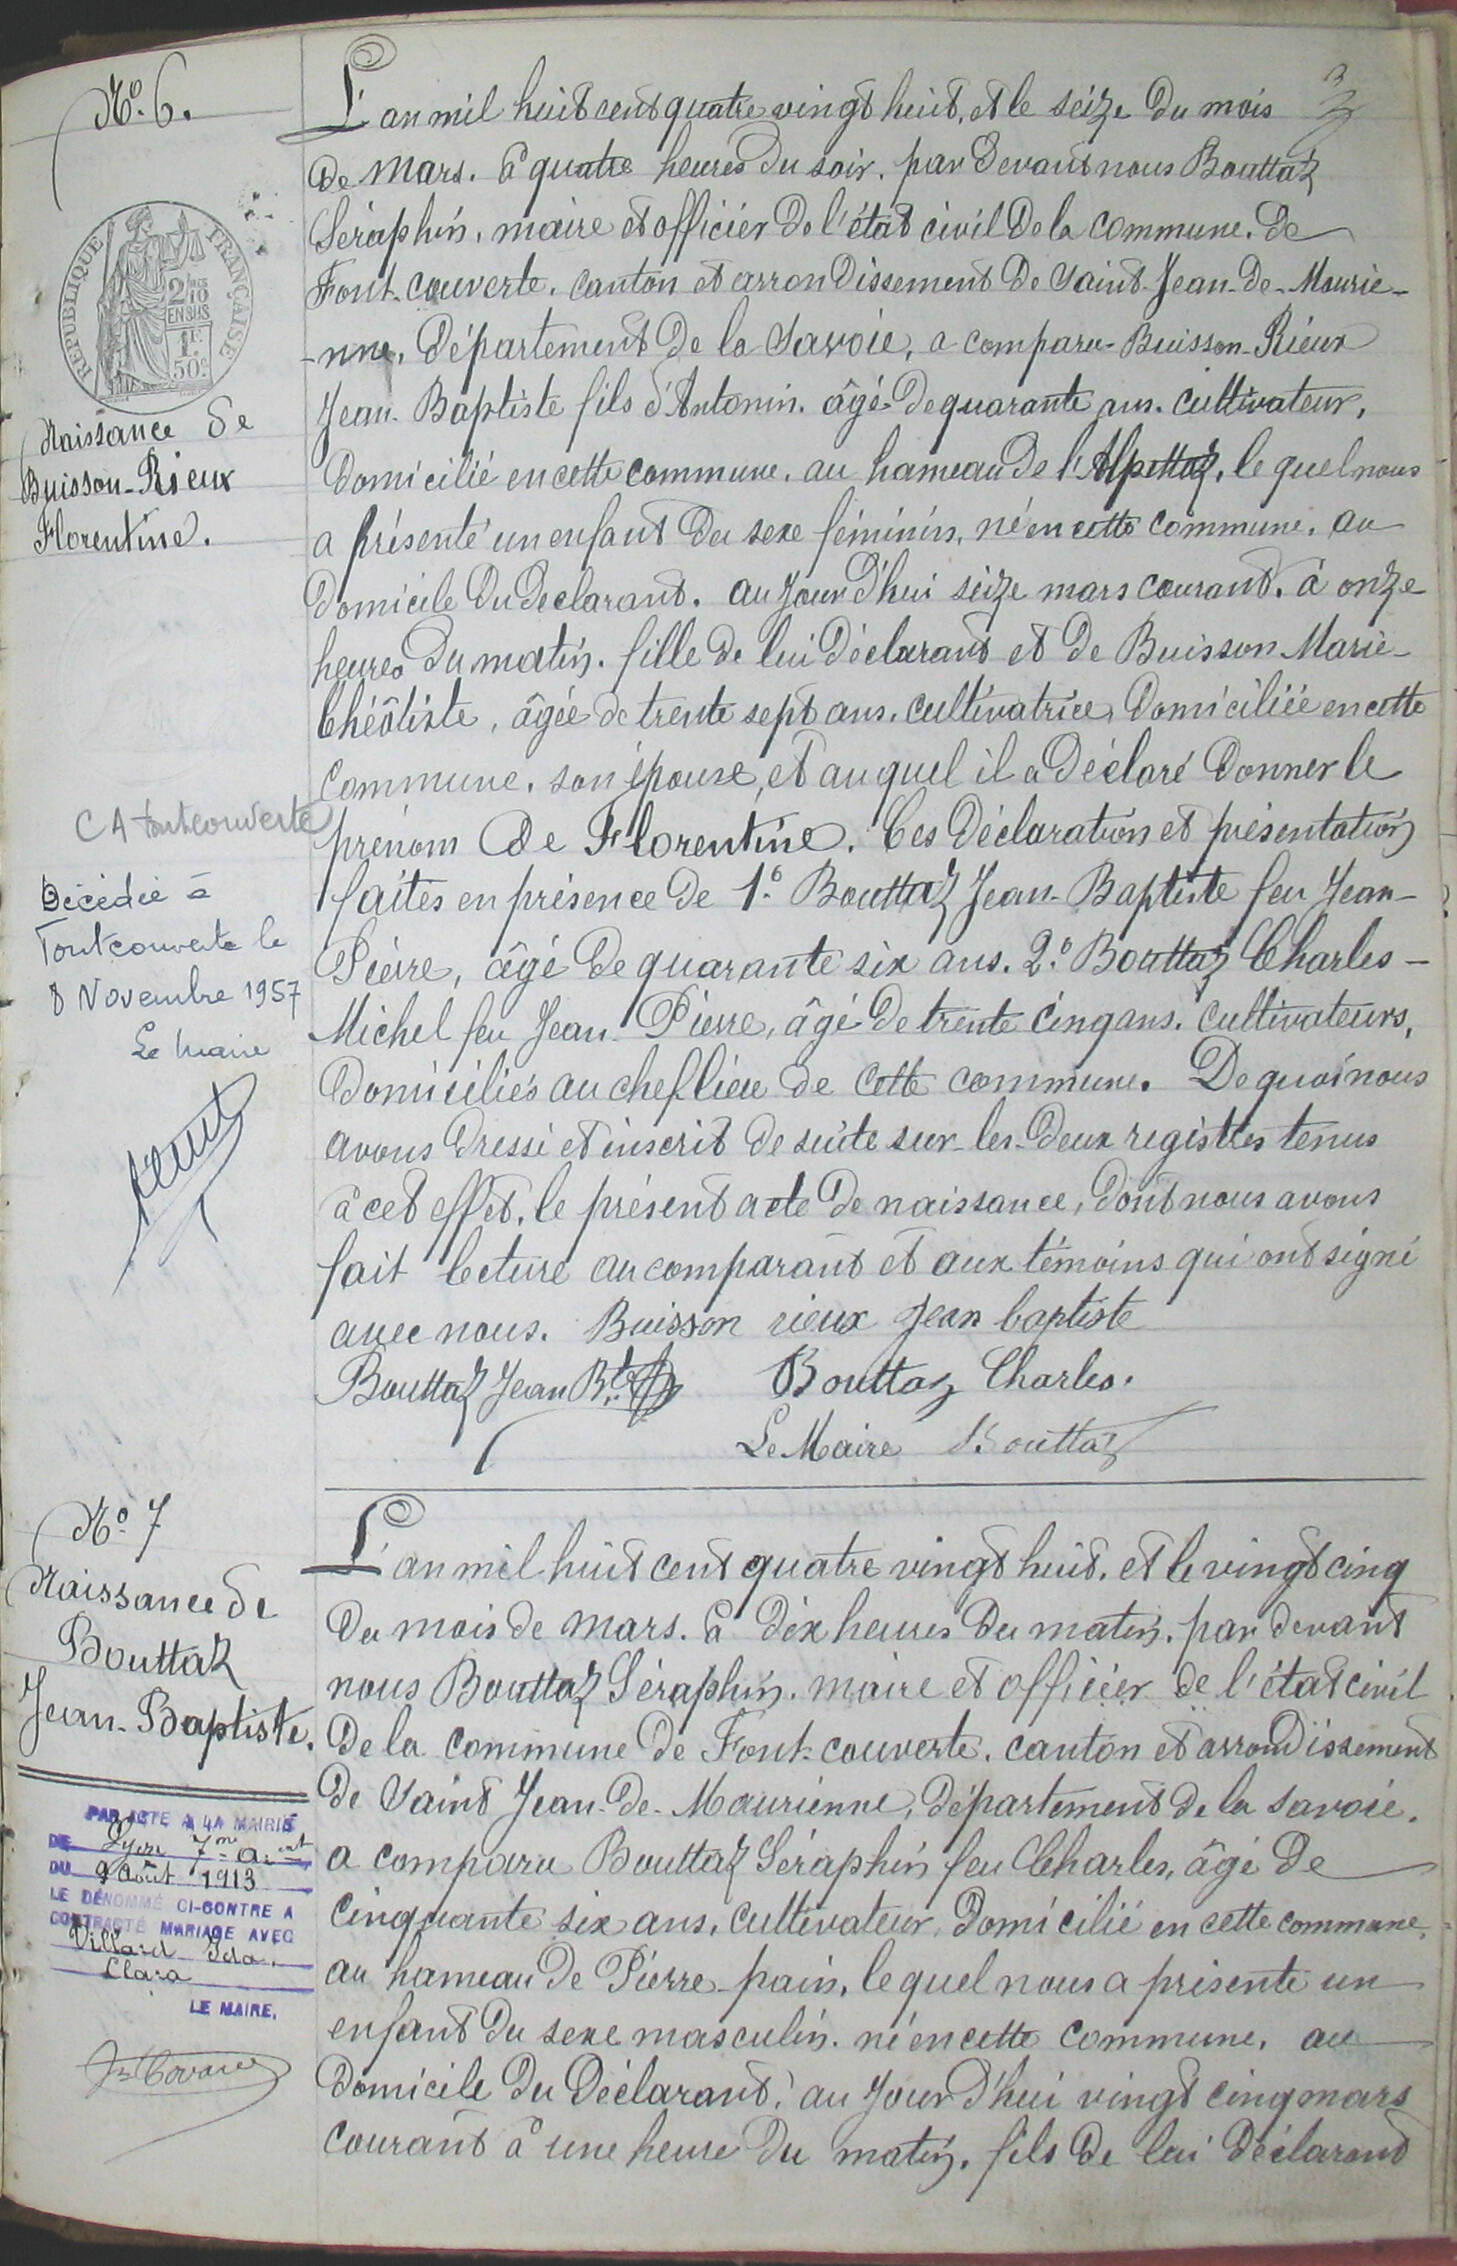 3
Nº. 6.
L'an mil huit cent quatre vingt huit, et le seize du mois
de mars. à quatre heures du soir, par devant nous Bouttaz
Séraphin, maire et officier de l'état civil de la commune de
Font-couverte, canton et arrondissement de Saint-Jean-de-Maurie-
-nne, département de la Savoie, a comparu Buisson-Rieux
Jean-Baptiste fils d'Antonin, âgé de quarante ans, cultivateur,
domicilié en cette commune, au hameau de l'Alpettaz, le quel nous
a présenté un enfant du sexe féminin, né en cette commune, au
domicile du declarant, au jour d'hui seize mars courant, à onze
heures du matin, fille de lui déclarant et de Buisson Marie-
Chéôtiste, âgée de trente sept ans, cultivatrice, domiciliée en cette
commune, son épouse, et au quel il a déclaré donner le
prénom de Florentine. Ces déclaration et présentation
faites en présence de 1º. Bouttaz Jean-Baptiste feu Jean-
Pierre, âgé de quarante six ans. 2º. Bouttaz Charles-
Michel feu Jean-Pierre, âgé de trente cinq ans, cultivateurs,
domiciliés au chef lieu de cette commune. De quoi nous
avons dressé et inscrit de suite sur les deux registres tenus
à cet effet, le présent acte de naissance, dont nous avons
fait lecture au comparant et aux témoins qui ont signé
avec nous. Buisson rieux jean baptiste
Bouttaz Jean Bte Bouttaz Charles.
Le Maire Bouttaz
REPUBLIQUE FRANÇAISE
2/10
EN SUS
1F.
50c
Naissance de
Buisson-Rieux
Florentine.
CA Fontcouverte
Décédée à
Fontcouverte le
8 Novembre 1957
Le Maire
Nº 7
Naissance de
Bouttaz
Jean-Baptiste.
L'an mil huit cent quatre vingt huit, et le vingt cinq
du mois de mars. à dix heures du matin, par devant
nous Bouttaz Séraphin, maire et officier de l'état civil
de la commune de Font-couverte, canton et arrondissement
de Saint Jean-de-Maurienne, département de la Savoie,
a comparu Bouttaz Séraphin feu Charles, âgé de
cinquante six ans, cultivateur, domicilié en cette commune,
au hameau de Pierre-pain, le quel nous a présenté un
enfant du sexe masculin, né en cette commune, au
domicile du déclarant, au jour d'hui vingt cinq mars
courant à une heure du matin, fils de lui déclarant
PAR ACTE A LA MAIRIE
DE Lyon 7me Arr.nt
DU 9 août 1913
LE DÉNOMMÉ CI-CONTRE A
CONTRACTÉ MARIAGE AVEC
Villard Ida,
Clara
LE MAIRE,